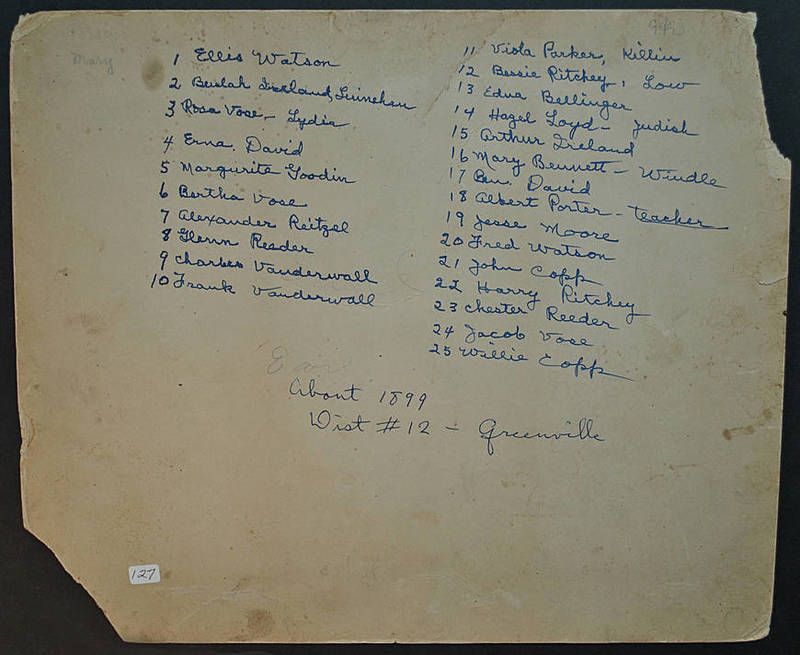 Mary
1 Ellis Watson
2 Beulah Ireland, Linnehan
3 Rosa Vose - Lydia
4 Erna David
5 Margurite Goodin
6 Bertha Vose
7 Alexander Reitzel
8 Glenn Reader
9 Charles Vanderwall
10 Frank Vanderwall
11 Viola Parker, Killin
12 Bessie Ritchey, Low
13 Edna Bellinger
14 Hazel Loyd - Judish
15 Arthur Ireland
16 Mary Bennett - Windle
17 Ben. David
18 Albert Porter - teacher
19 Jesse Moore
20 Fred Watson
21 John Copp
22 Harry Ritchey
23 Chester Reeder
24 Jacob Vose
25 Willie Copp
About 1899
Dist #12 - Greenville
127